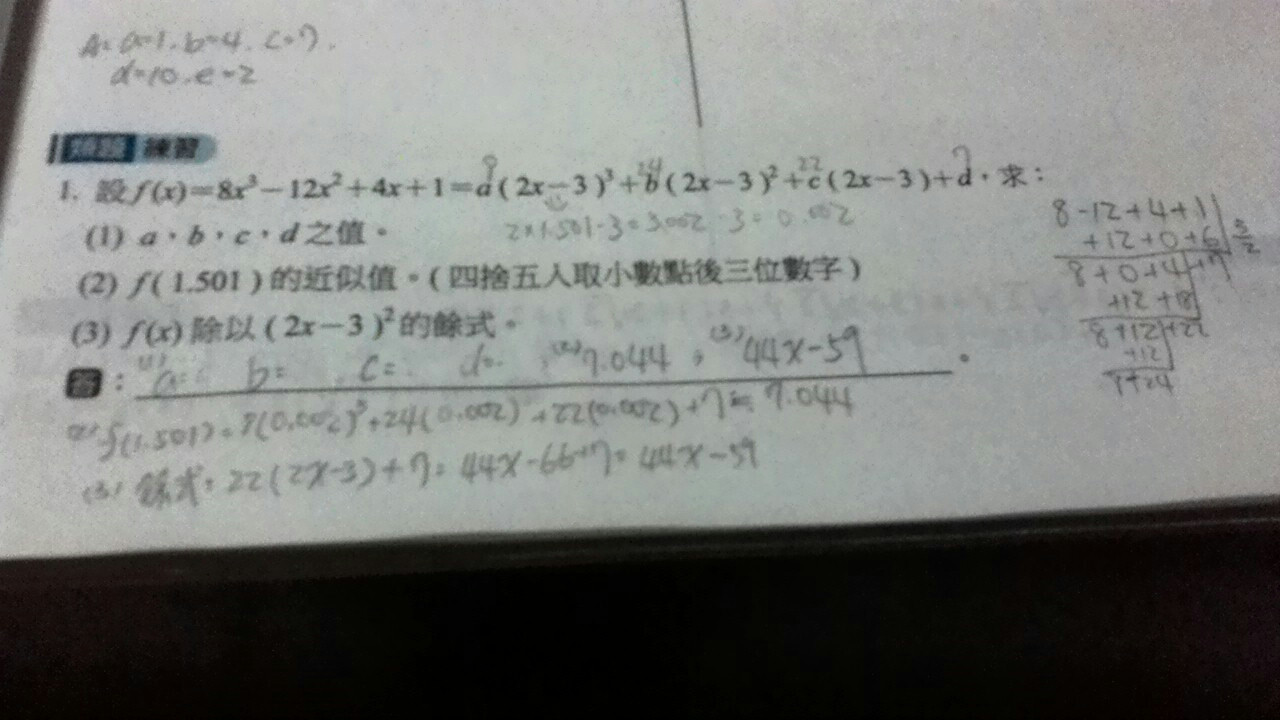 A: a=1, b=4, c=7,
d=10, e=2
類題 練習
1. 設f(x)=8x³-12x²+4x+1=a(2x-3)³+b(2x-3)²+c(2x-3)+d,求:
24 22 7
(1) a、b、c、d之值。
2×1.501-3=3.002-3=0.002
(2) f(1.501)的近似值。(四捨五入取小數點後三位數字)
(3) f(x)除以(2x-3)²的餘式。
答: (1) a= b= c= d= (2) 7.044, (3) 44x-59。
(2) f(1.501)=8(0.002)³+24(0.002)+22(0.002)+7≒7.044
(3) 餘式=22(2x-3)+7=44x-66+7=44x-59
8-12+4+1
+12+0+6 3/2
8+0+4+7
+12+18
8+12+22
+12
+24